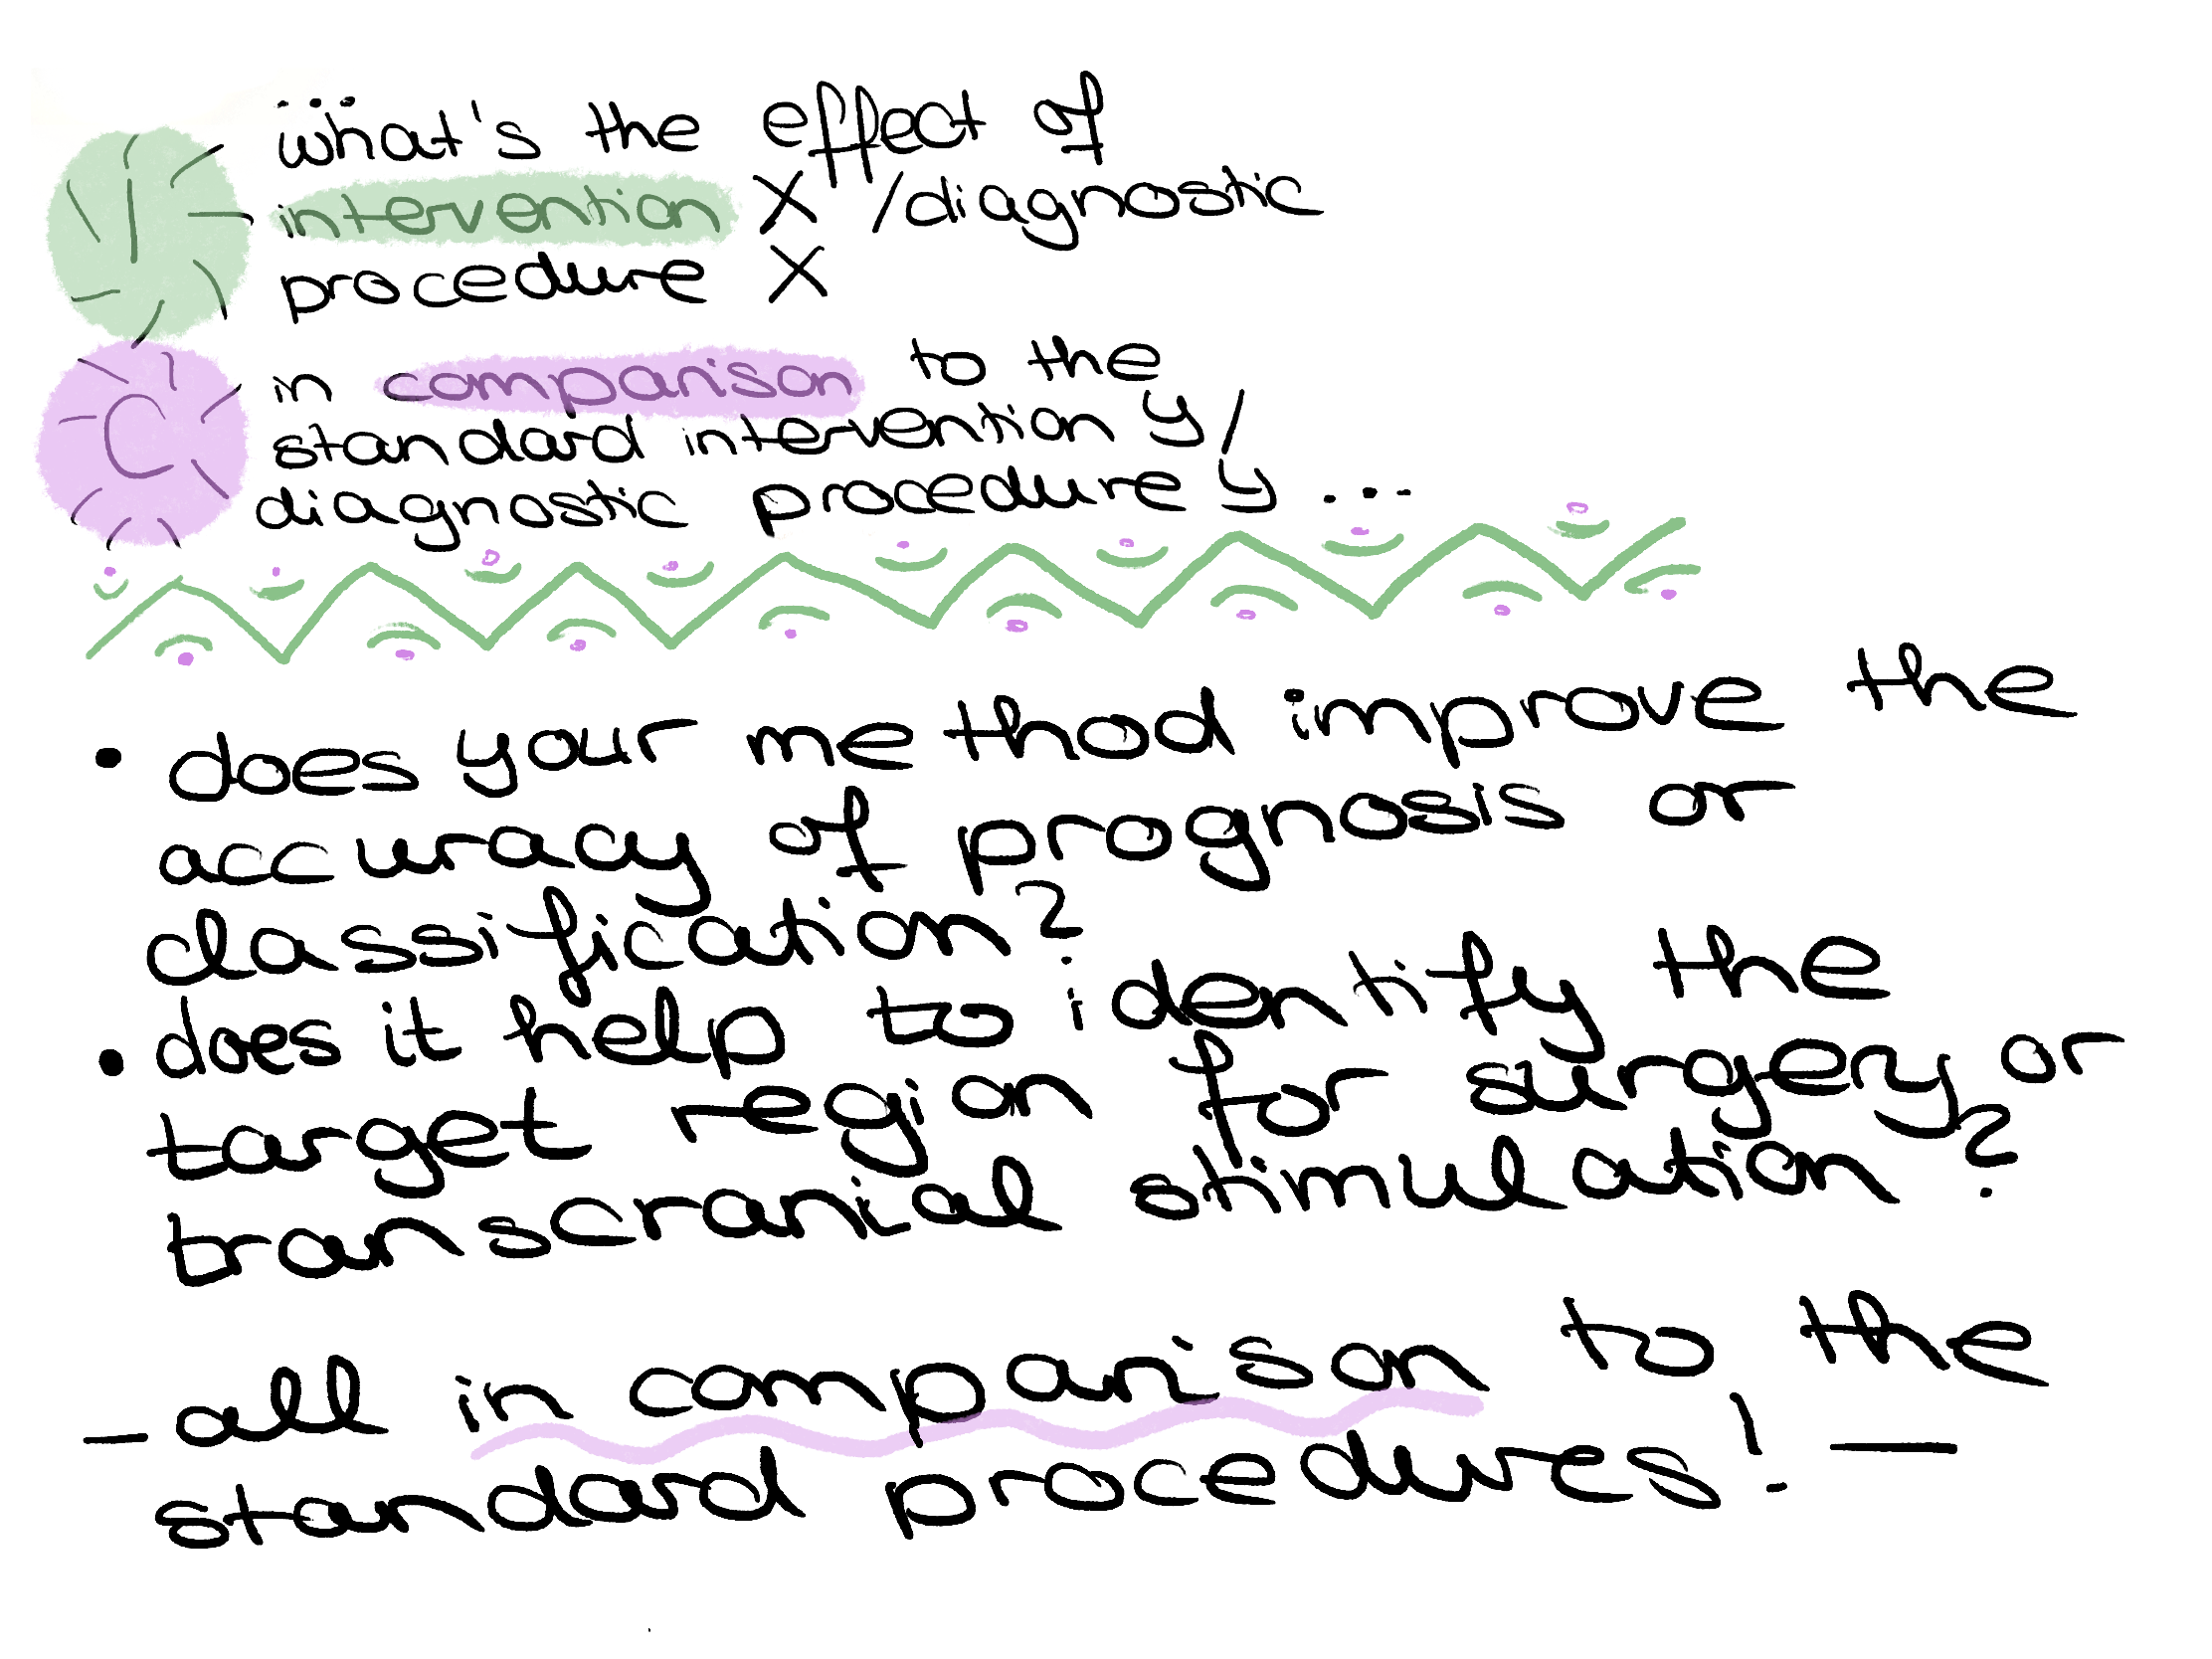 ...
I what's the effect of
intervention X /diagnostic
procedure X
C in comparison to the
standard intervention y/
diagnostic procedure y ...
• does your method improve the
accuracy of prognosis or
classification?
• does it help to identify the
target region for surgery or
transcranial stimulation?
- all in comparison to the
standard procedures! -